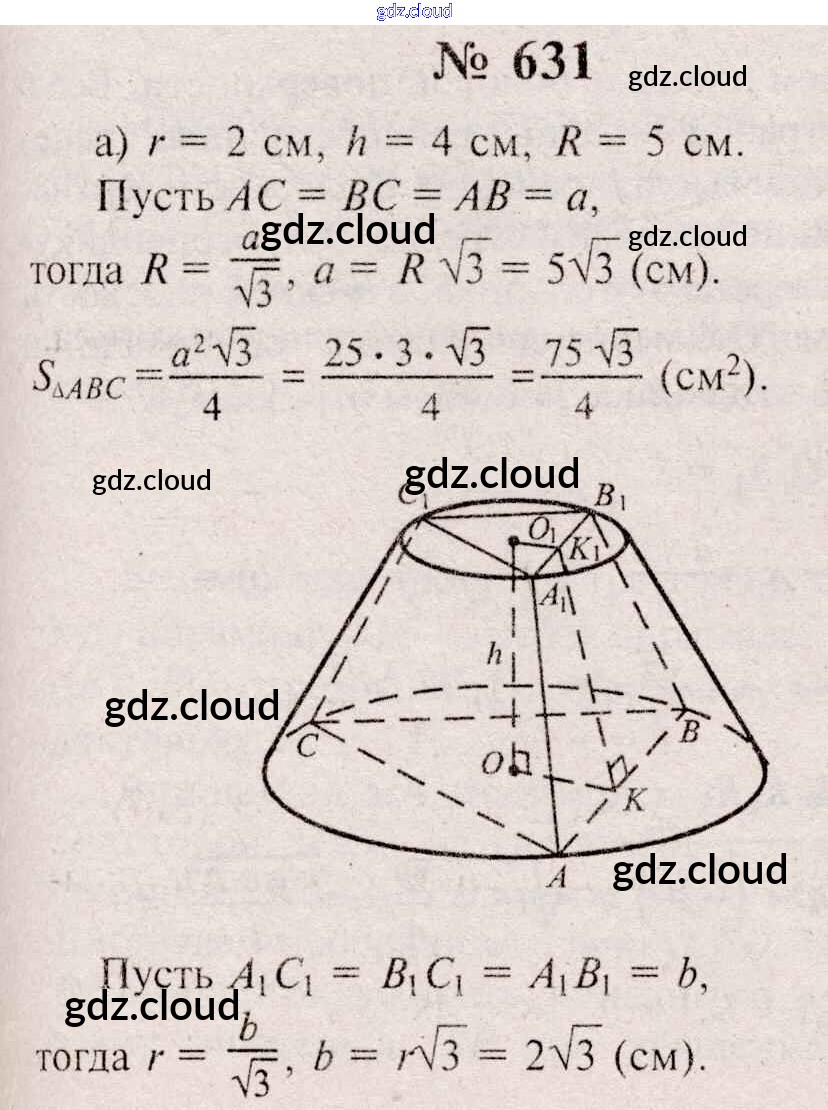 gdz.cloud
№ 631 gdz.cloud
а) r = 2 см, h = 4 см, R = 5 см.
Пусть AC = BC = AB = a,
gdz.cloud gdz.cloud
тогда R = a/√3, a = R √3 = 5√3 (см).
S△ABC = a²√3/4 = 25 · 3 · √3/4 = 75 √3/4 (см²).
gdz.cloud gdz.cloud
C₁ B₁
O₁ K₁
A₁
h
gdz.cloud
C B
O K
A gdz.cloud
Пусть A₁C₁ = B₁C₁ = A₁B₁ = b,
gdz.cloud
тогда r = b/√3, b = r√3 = 2√3 (см).